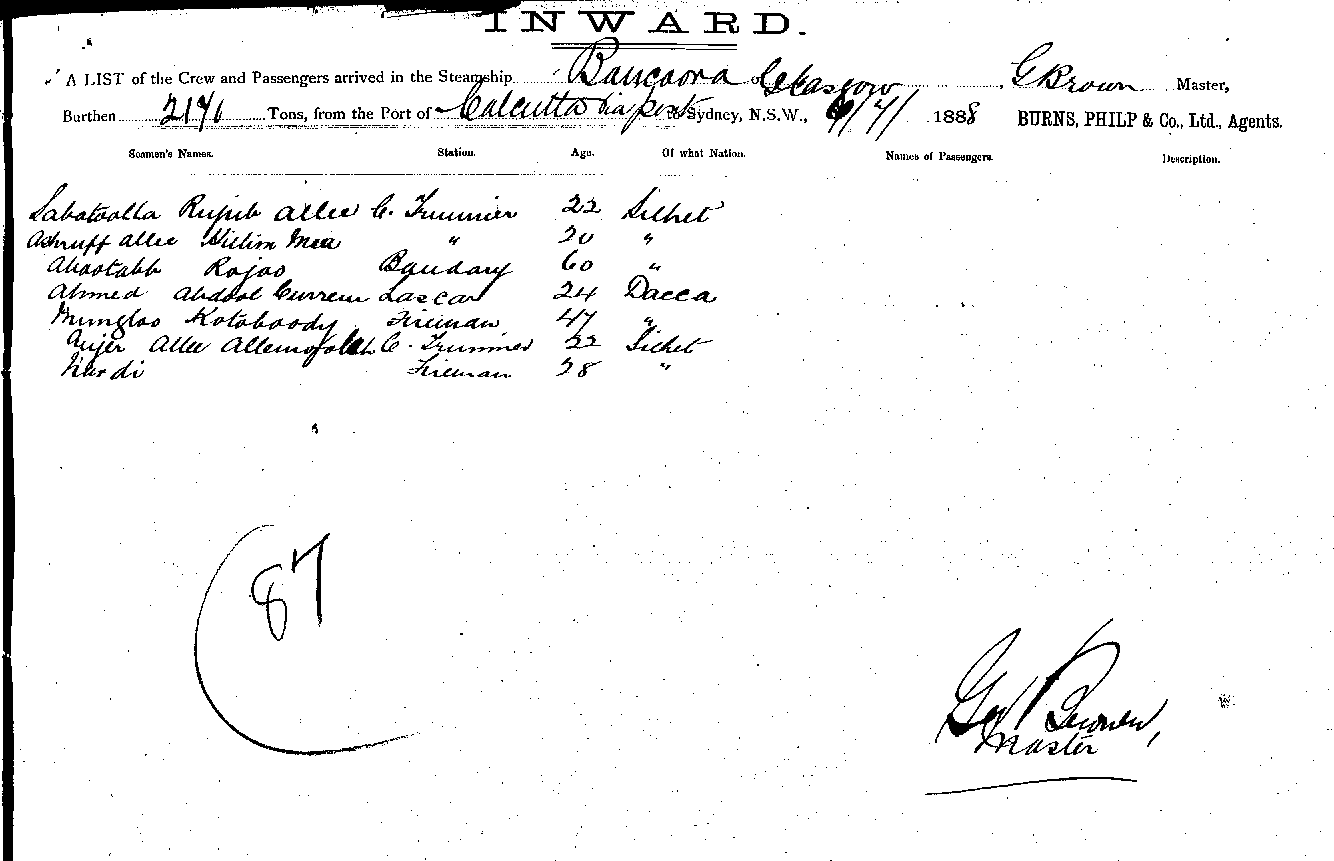 INWARD.
A LIST of the Crew and Passengers arrived in the Steamship Bancoora of Glasgow G Brown Master,
Burthen Tons, from the Port of Calcutta via port to Sydney, N.S.W., /7/ 1888 BURNS, PHILP & Co., Ltd., Agents.
Seamen's Names. Station. Age. Of what Nation. Names of Passengers. Description.
Rujub allee C. Trimmer 22 Silhet
Ashruff allee Mea " 20 "
Rojao Bandary 60 "
Ahmed abdool Curreem Lascar 24 Dacca
Mungloo Fireman 47 "
allee C. Trimmer 22 Silhet
Fireman 28 "
87
Geo Brown,
Master